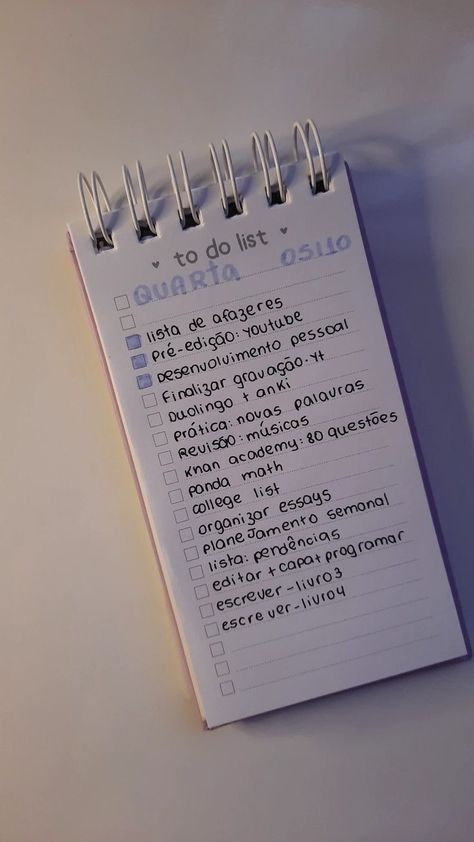 to do list
QUARTA 05/10
lista de afazeres
pré-edição: youtube
Desenvolvimento pessoal
Finalizar gravação-yt
Duolingo + anki
prática: novas palavras
Revisão: músicas
Khan academy: 80 questões
panda math
college list
organizar essays
planejamento semanal
lista: pendências
editar + capa + programar
escrever-livro3
escrever-livro4